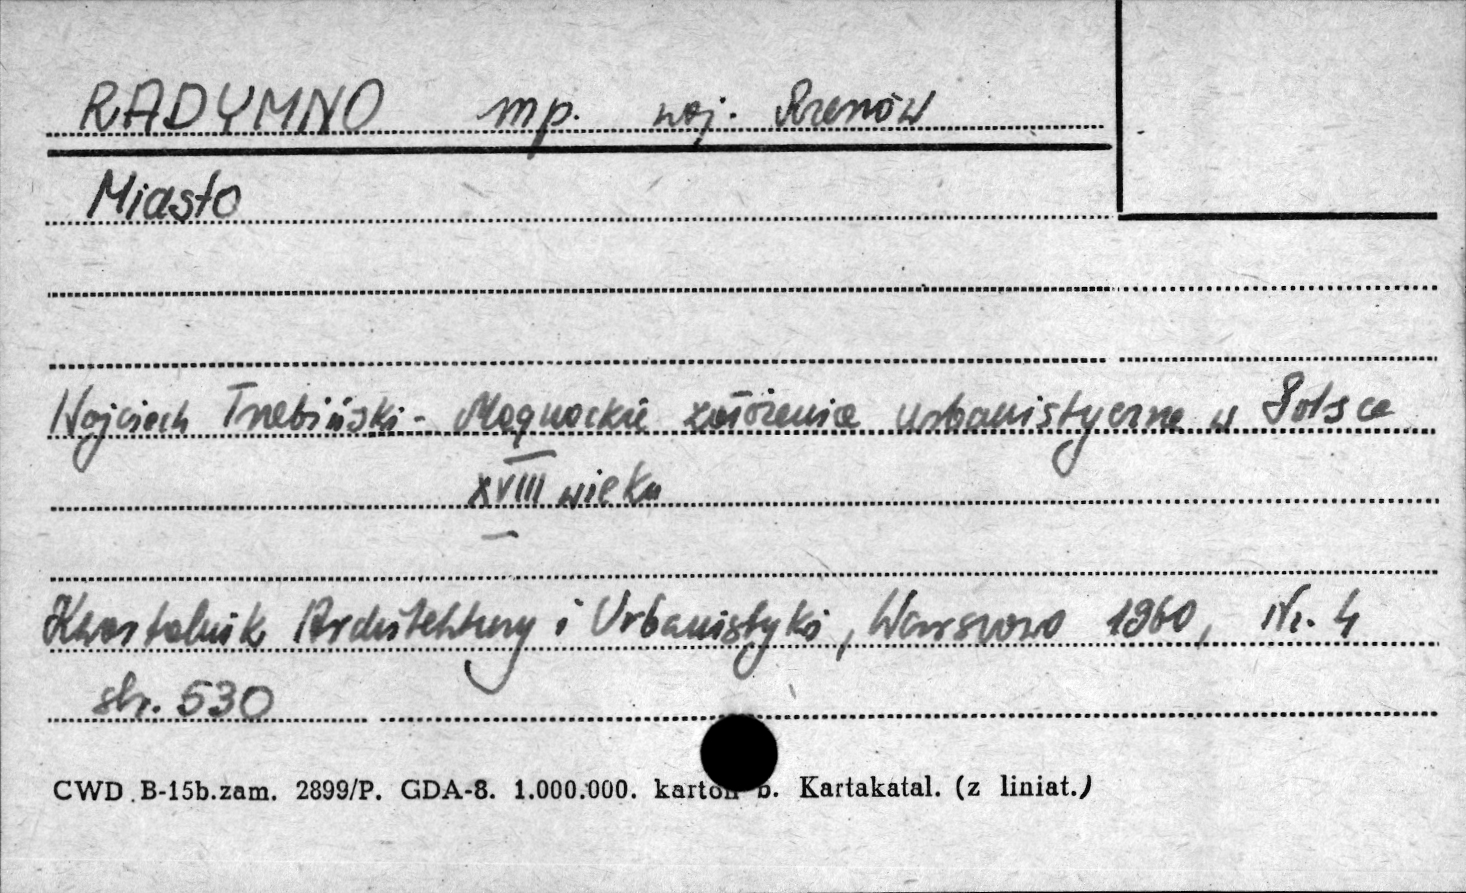 RADYMNO mp. woj. Rzeszów
Miasto
Wojciech Trzebiński - Magnackie założenia urbanistyczne w Polsce
XVIII wieku
Kwartalnik Architektury i Urbanistyki, Warszawa 1960, Nr. 4
str. 530
CWD B-15b.zam. 2899/P. GDA-8. 1.000.000. karton b. Kartakatal. (z liniat.)